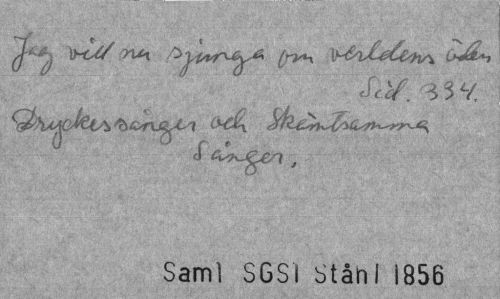 Jag vill nu sjunga om verldens öden
Sid. 334.
Dryckessånger och Skämtsamma
Sånger.
Saml SGS1 Stånl 1856